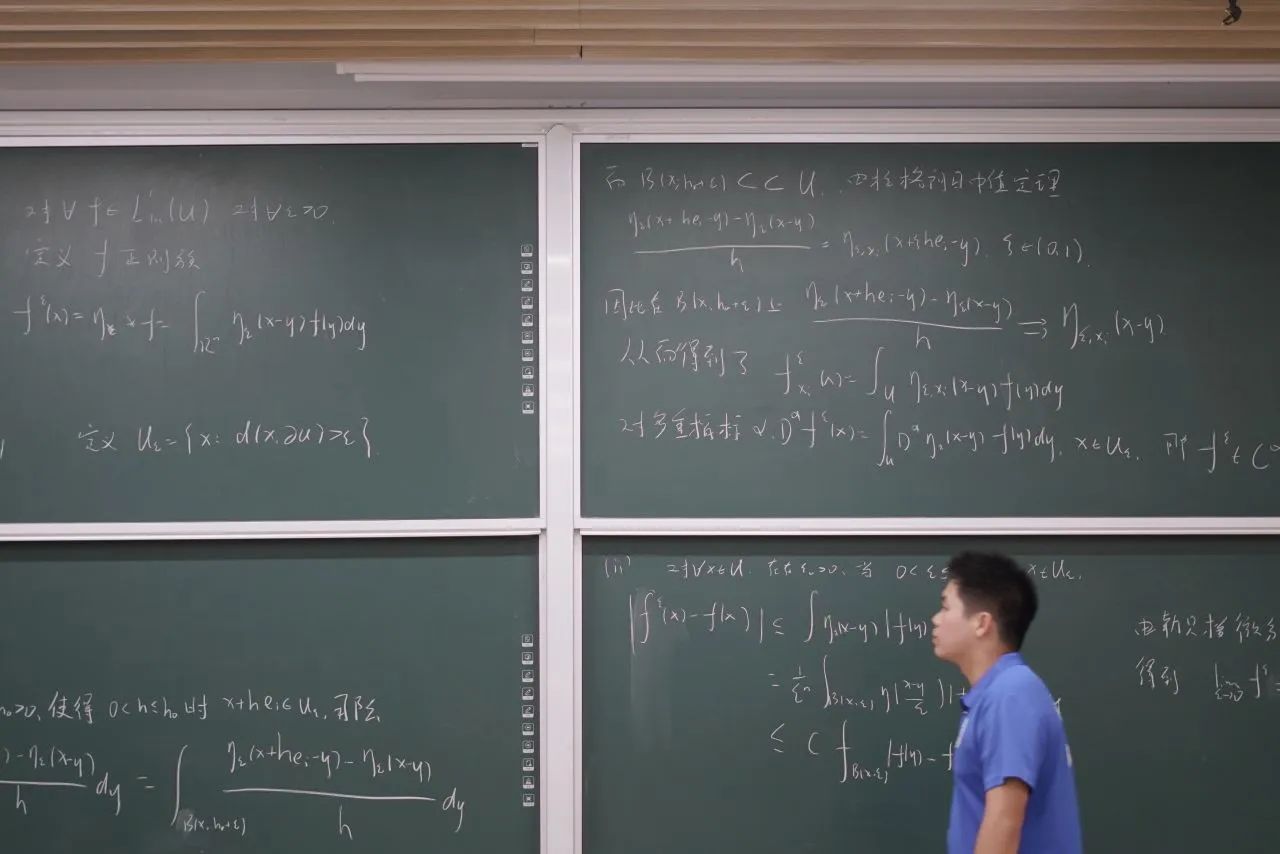 对∀ f∈L¹ₗₒ꜀(U) 对∀ε>0.
定义 f 正则族
f^ε(x)=η_ε * f= ∫_{ℝⁿ} η_ε(x-y)f(y)dy
定义 U_ε={x: d(x,∂U)>ε}
h₀>0, 使得 0<h≤h₀ 时 x+he_i∈U_ε,
)-η_ε(x-y)/h dy = ∫_{B(x,h₀+ε)} (η_ε(x+he_i-y)-η_ε(x-y))/h dy
而 B(x,h₀+ε)⊂⊂U, 由拉格朗日中值定理
(η_ε(x+he_i-y)-η_ε(x-y))/h = η_{ε,x_i}(x+ξhe_i-y), ξ∈(0,1).
因此在 B(x,h₀+ε)上 (η_ε(x+he_i-y)-η_ε(x-y))/h ⇉ η_{ε,x_i}(x-y)
从而得到了 f^ε_{x_i}(x)=∫_U η_{ε,x_i}(x-y)f(y)dy
对多重指标 α, D^α f^ε(x)=∫_U D^α η_ε(x-y)f(y)dy, x∈U_ε, 即 f^ε∈C^∞
(ii) 对∀x∈U, 存在ε₀>0, 当 0<ε≤ x∈U_ε,
|f^ε(x)-f(x)| ≤ ∫η_ε(x-y)|f(y)
= 1/εⁿ ∫_{B(x,ε)} η(\frac{x-y}{ε})|f
≤ C ⨍_{B(x,ε)} |f(y)-f
由勒贝格微分
得到 lim_{ε→0} f^ε =